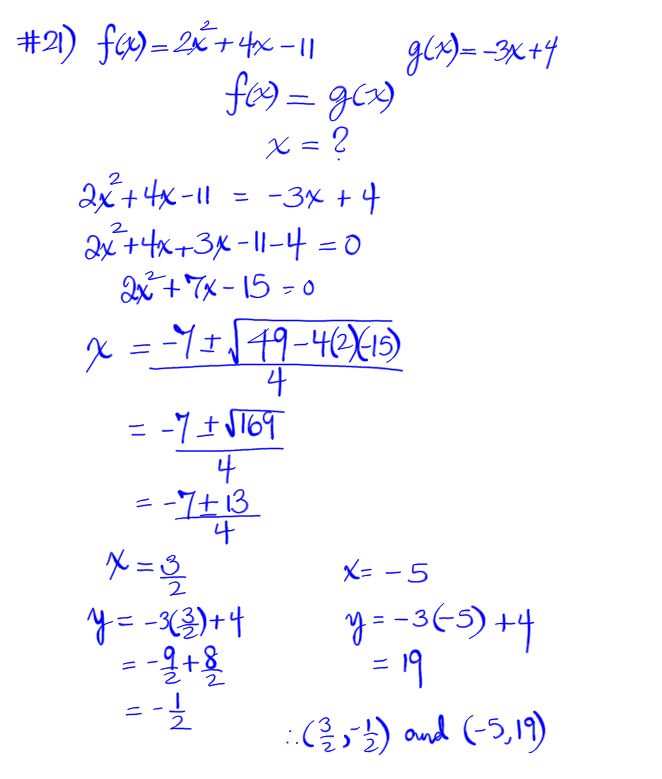 #21) f(x) = 2x² + 4x - 11 g(x) = -3x + 4
f(x) = g(x)
x = ?
2x² + 4x - 11 = -3x + 4
2x² + 4x + 3x - 11 - 4 = 0
2x² + 7x - 15 = 0
x = (-7 ± √(49 - 4(2)(-15)))/4
= (-7 ± √169)/4
= (-7 ± 13)/4
x = 3/2 x = -5
y = -3(3/2) + 4 y = -3(-5) + 4
= -9/2 + 8/2 = 19
= -1/2
∴ (3/2, -1/2) and (-5, 19)